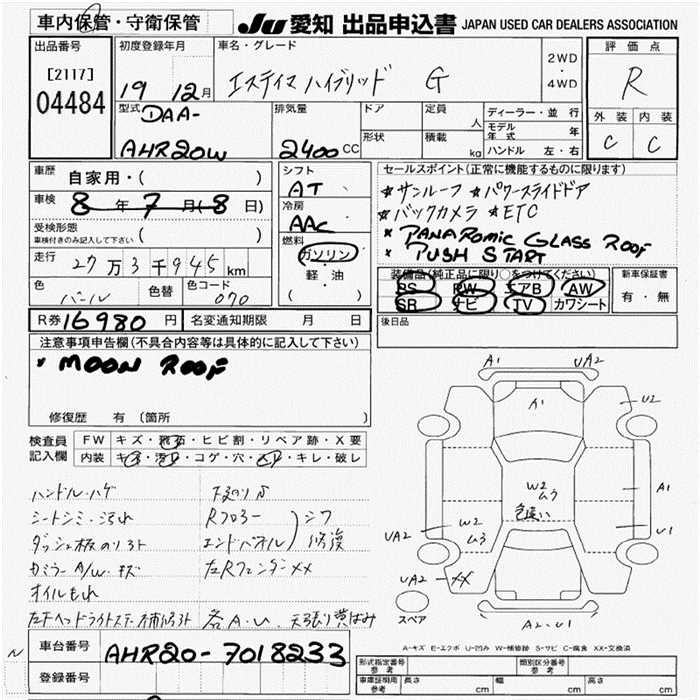 車内保管・守衛保管
JU 愛知 出品申込書 JAPAN USED CAR DEALERS ASSOCIATION
出品番号
[2117]
04484
初度登録年月
19 12月
車名・グレード
エスティマ ハイブリッド G
2WD
・
4WD
評価点
R
外装 内装
C C
型式
DAA-
AHR20W
排気量
2400 CC
ドア
形状
定員
人
積載
kg
ディーラー・並行
モデル年式 年
ハンドル 左・右
車歴
自家用・( )
車検
8年 7月(-8日)
受検形態
車検付きのみ記入して下さい ( )
走行
27万3千945km
色
パール
色替
色コード
070
シフト
AT
冷房
AAC
燃料
ガソリン
軽・油
( )
セールスポイント(正常に機能するものに限ります)
*サンルーフ *パワースライドドア
*バックカメラ *ETC
* PANAROMIC GLASS ROOF
* PUSH START
装備品(純正品に限り○をつけてください)
PS PW エアB AW
SR ナビ TV カワシート
新車保証書
有・無
R券 16980 円
名変通知期限 月 日
後日品
注意事項申告欄(不具合内容等は具体的に記入して下さい)
* MOON ROOF
修復歴 有 〔箇所
検査員
記入欄
FW キズ・飛石・ヒビ割・リペア跡・X要
内装 キズ・汚れ・コゲ・穴・スレ・キレ・破レ
ハンドル・ハゲ
シートシミ・汚れ
Rフロアー
シワ
ダッシュ板のりあと
エンドパネル
修復
カミラー A/W・キズ
左Rフェンダー××
オイルもれ
各A・U. 天張り黄ばみ
A1
UA2
A1
U2
A1
W2
ムラ
色違い
U1
UA2
W2
ムラ
UA2
××
A2・U1
スペア
A-キズ E-エクボ U-凹み W-補修跡 S-サビ C-腐食 XX-交換済
N
車台番号
AHR20-7018233
登録番号
形式指定番号
参考
類別区分番号
参考
車庫証明用
参考
長さ cm
幅 cm
高さ cm